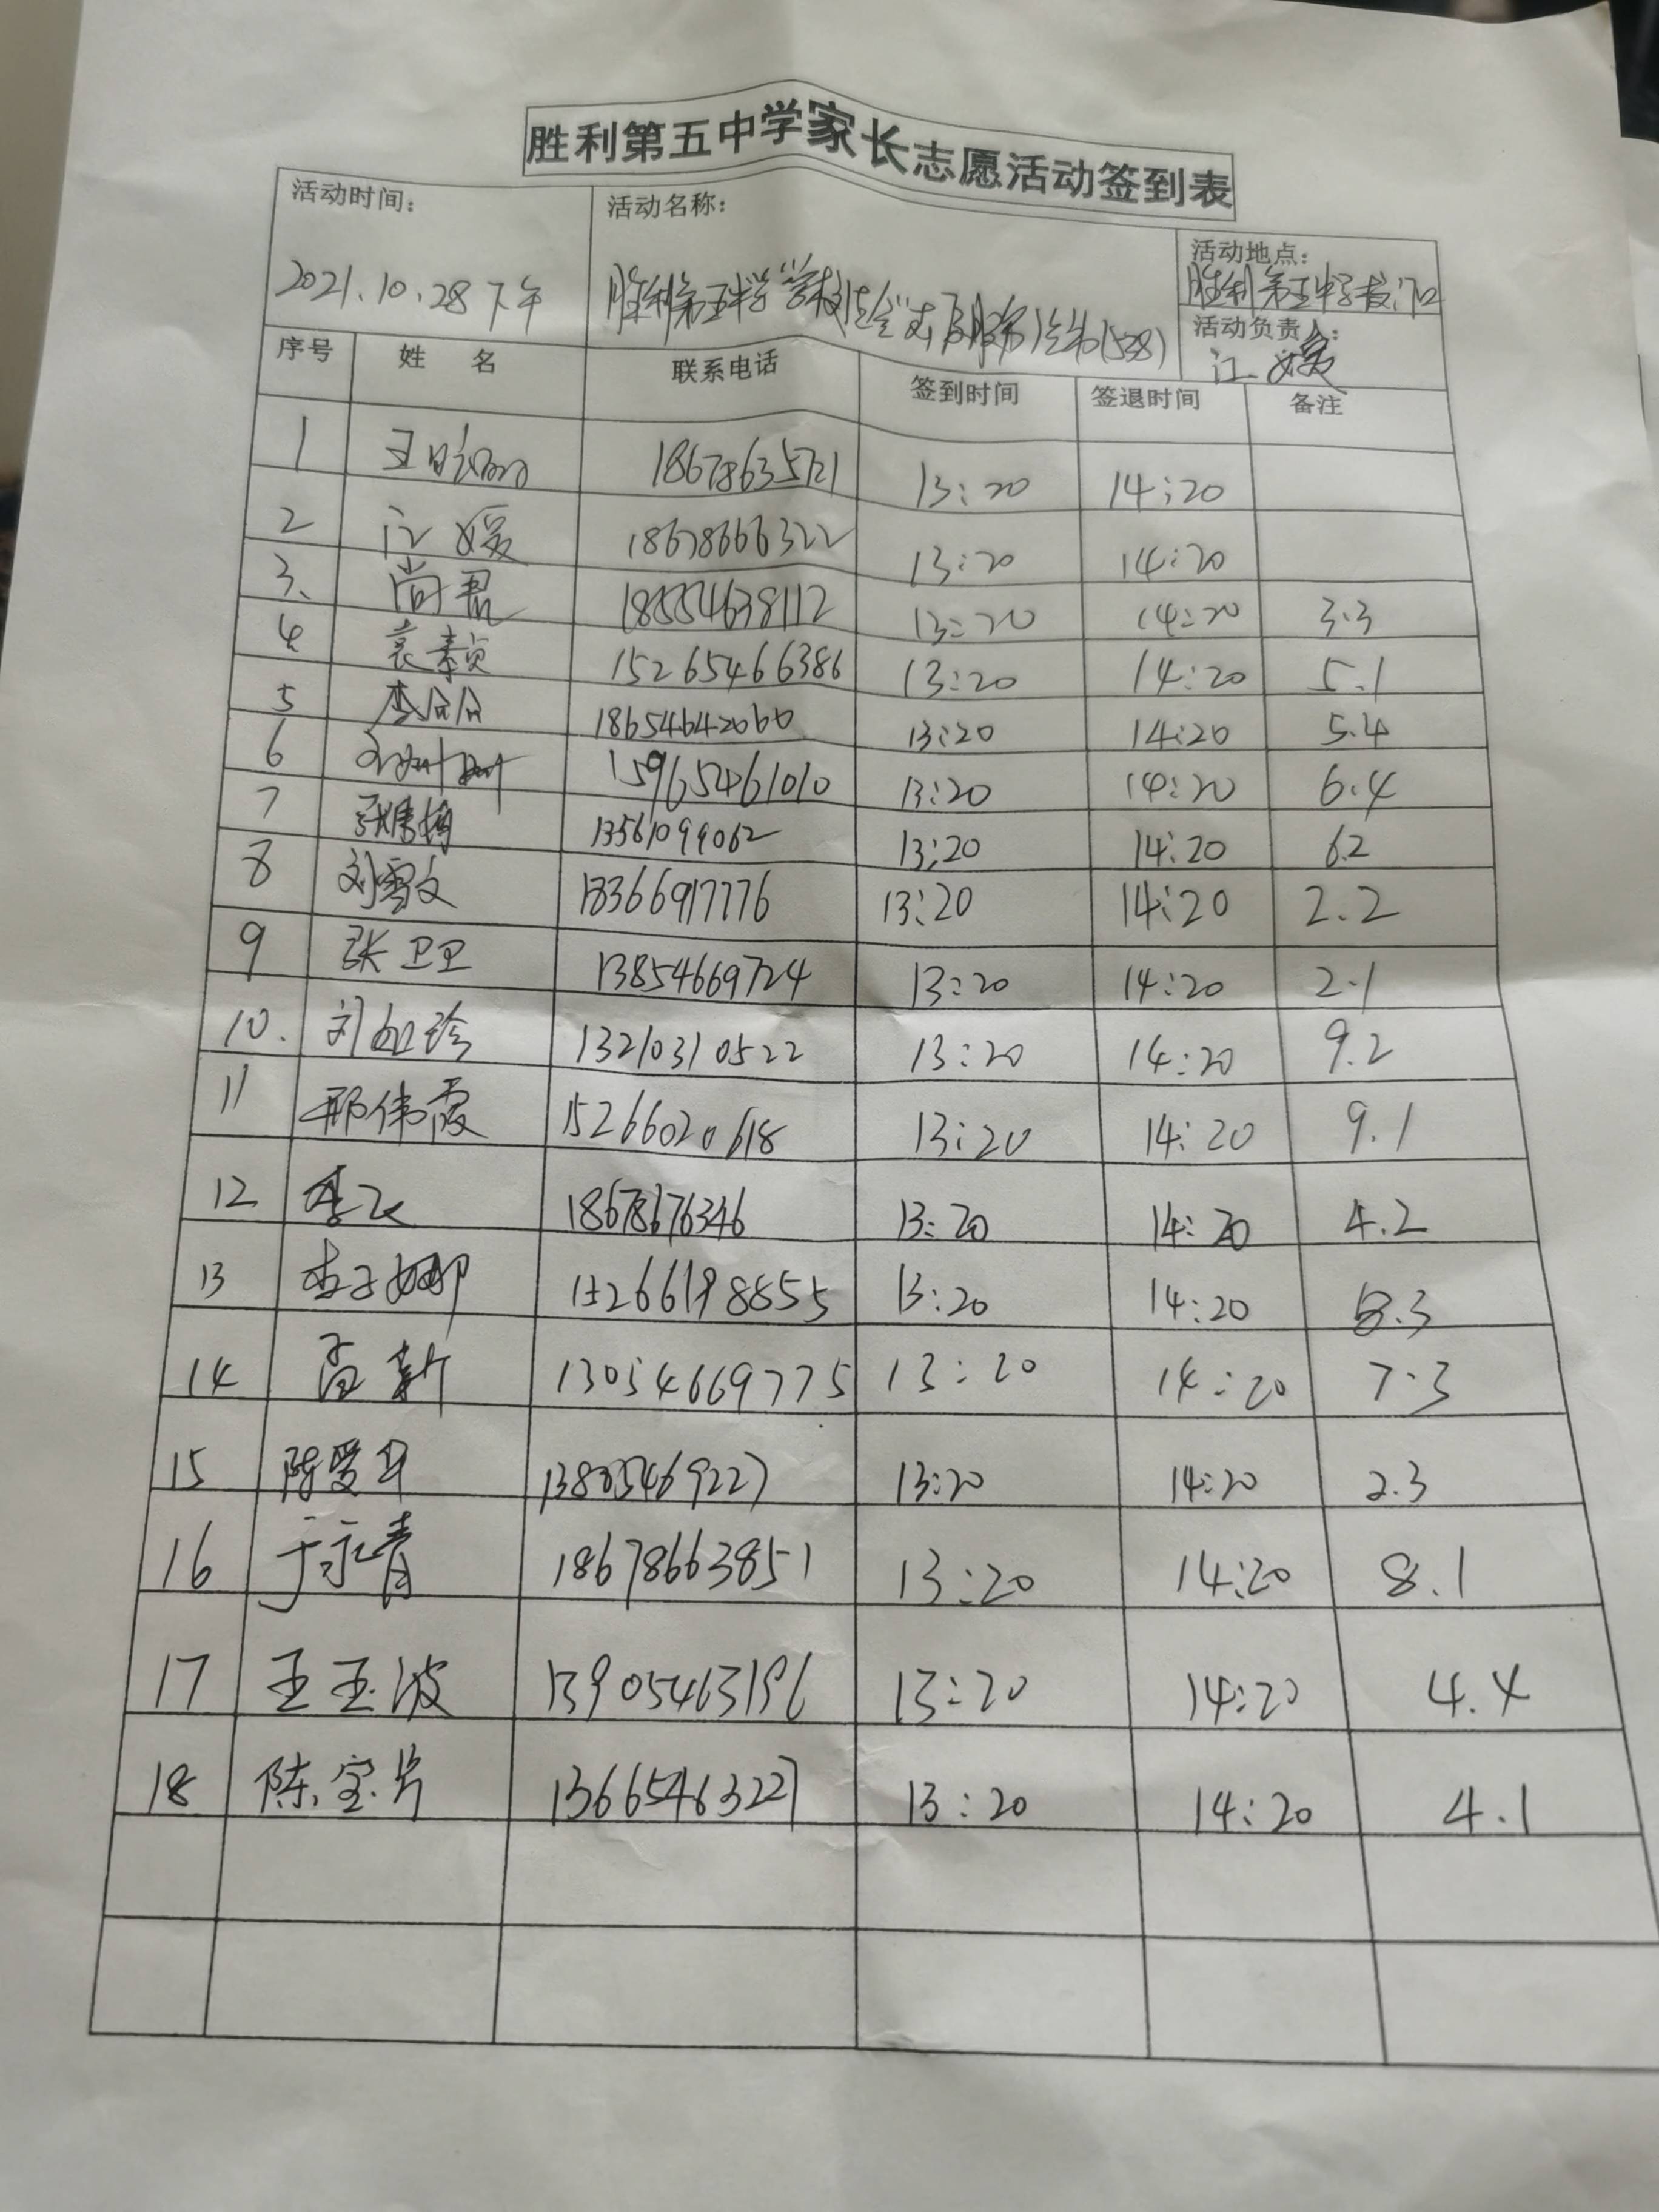 胜利第五中学家长志愿活动签到表
活动时间： 活动名称： 活动地点：
2021.10.28下午 胜利第五中学"学校 (528) 胜利第五中学校门口
活动负责人：
江媛
序号 姓 名 联系电话 签到时间 签退时间 备注
1 18678635721 13:20 14:20
2 江媛 18678666322 13:20 14:20
3、 尚君 18554638112 13:20 14:20 3.3
4 袁素贞 15265466386 13:20 14:20 5.1
5 18654642060 13:20 14:20 5.4
6 15965461010 13:20 14:20 6.4
7 13561099062 13:20 14:20 6.2
8 刘雪文 18366917776 13:20 14:20 2.2
9 张卫卫 13854669724 13:20 14:20 2.1
10. 刘如珍 13210310522 13:20 14:20 9.2
11 邢伟霞 15266020618 13:20 14:20 9.1
12 18678676346 13:20 14:20 4.2
13 13:20 14:20 8.3
14 13054669775 13:20 14:20 7.3
15 13805469227 13:20 14:20 2.3
16 于永青 18678663851 13:20 14:20 8.1
17 王玉波 13905463196 13:20 14:20 4.4
18 陈宝片 13665463227 13:20 14:20 4.1